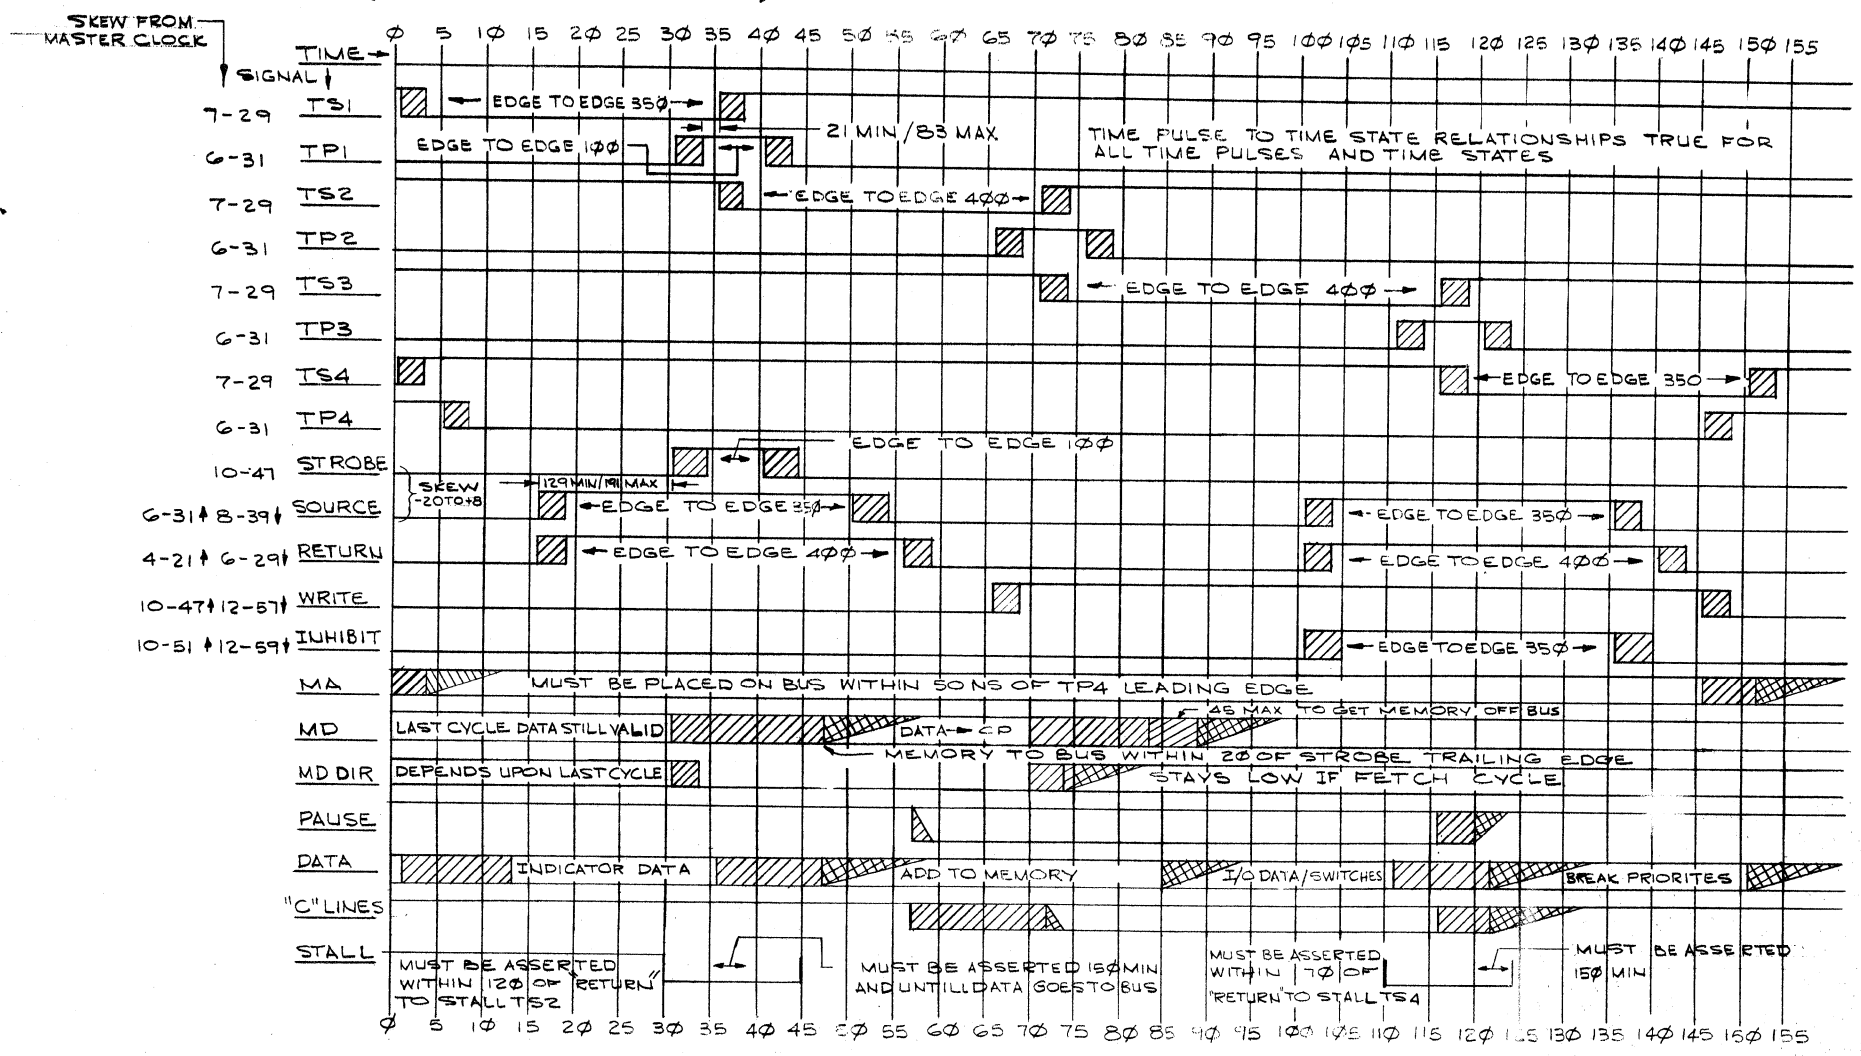 SKEW FROM
MASTER CLOCK
TIME
Ø 5 1Ø 15 2Ø 25 3Ø 35 4Ø 45 5Ø 55 6Ø 65 7Ø 75 8Ø 85 9Ø 95 1ØØ 1Ø5 11Ø 115 12Ø 125 13Ø 135 14Ø 145 15Ø 155
SIGNAL
7-29 TS1 EDGE TO EDGE 35Ø
21 MIN/83 MAX
EDGE TO EDGE 1ØØ
6-31 TP1
TIME PULSE TO TIME STATE RELATIONSHIPS TRUE FOR
ALL TIME PULSES AND TIME STATES
7-29 TS2 EDGE TO EDGE 4ØØ
6-31 TP2
7-29 TS3 EDGE TO EDGE 4ØØ
6-31 TP3
7-29 TS4 EDGE TO EDGE 350
6-31 TP4
EDGE TO EDGE 1ØØ
10-47 STROBE
SKEW
-20TO+8
129 MIN/191 MAX
6-31↑ 8-39↓ SOURCE EDGE TO EDGE 35Ø EDGE TO EDGE 35Ø
4-21↑ 6-29↓ RETURN EDGE TO EDGE 4ØØ EDGE TO EDGE 4ØØ
10-47↑12-57↓ WRITE
10-51 ↑12-59↓ INHIBIT EDGE TO EDGE 35Ø
MA MUST BE PLACED ON BUS WITHIN 50 NS OF TP4 LEADING EDGE
45 MAX TO GET MEMORY OFF BUS
MD LAST CYCLE DATA STILL VALID DATA→CP
MEMORY TO BUS WITHIN 2Ø OF STROBE TRAILING EDGE
MD DIR DEPENDS UPON LAST CYCLE STAYS LOW IF FETCH CYCLE
PAUSE
DATA INDICATOR DATA ADD TO MEMORY I/O DATA/SWITCHES BREAK PRIORITES
"C" LINES
STALL
MUST BE ASSERTED
WITHIN 12Ø OF "RETURN"
TO STALL TS2
MUST BE ASSERTED 15Ø MIN
AND UNTILL DATA GOES TO BUS
MUST BE ASSERTED
WITHIN 17Ø OF
"RETURN" TO STALL TS4
MUST BE ASSERTED
15Ø MIN
Ø 5 1Ø 15 2Ø 25 3Ø 35 4Ø 45 5Ø 55 6Ø 65 7Ø 75 8Ø 85 9Ø 95 1ØØ 1Ø5 11Ø 115 12Ø 125 13Ø 135 14Ø 145 15Ø 155